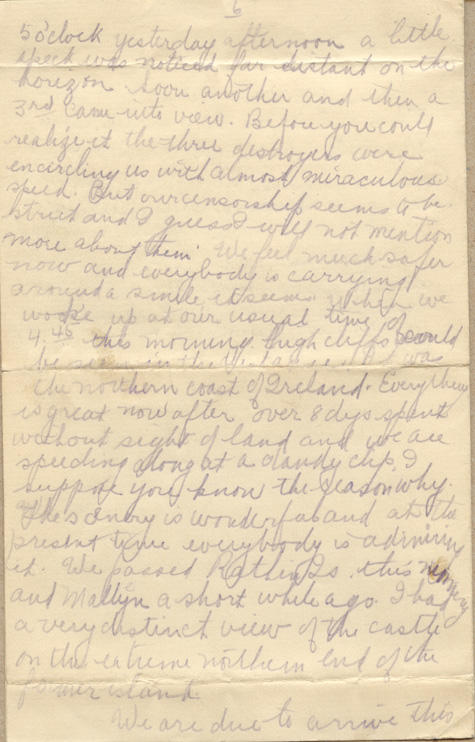 6
5 o'clock yesterday afternoon a little
speck was noticed far distant on the
horizon. Soon another and then a
3rd came into view. Before you could
realize it the three destroyers were
encircling us with almost miraculous
speed. But our censorship seems to be
strict and I guess I will not mention
more about them. We feel much safer
now and everybody is carrying
around a smile it seems. When we
woke up at our usual time of
4.45 this morning high cliffs could
be seen in the distance. It was
the northern coast of Ireland. Everything
is great now after over 8 dys spent
without sight of land and we are
speeding along at a dandy clip. I
suppose you know the reason why.
The scenery is wonderful and at the
present time everybody is admiring
it. We passed Rathen Is. this morning
and Mallyn a short while ago. I had
a very distinct view of the castle
on the extreme northern end of the
former island.
We are due to arrive this